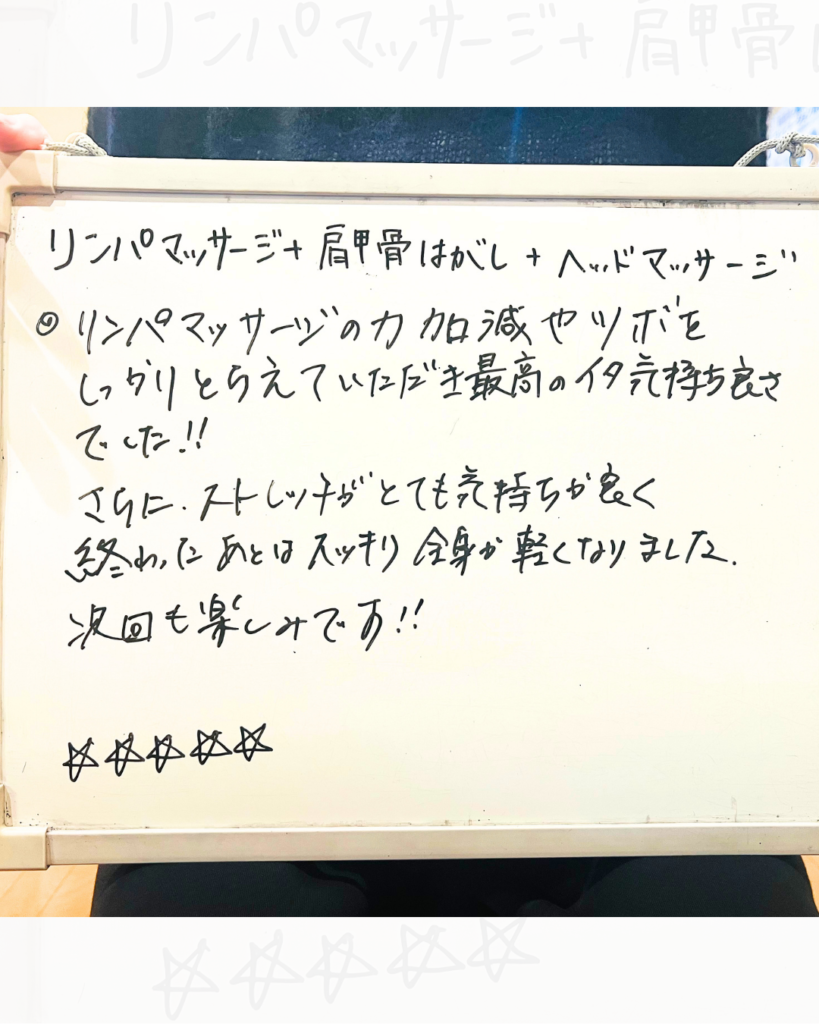 リンパマッサージ+肩甲骨は
リンパマッサージ+肩甲骨はがし+ヘッドマッサージ
◎リンパマッサージの力加減やツボを
しっかりとらえていただき最高のイタ気持ち良さ
でした!!
さらに、ストレッチがとても気持ちが良く
終わったあとはスッキリ全身が軽くなりました.
次回も楽しみです!!
☆☆☆☆☆
☆☆☆☆☆